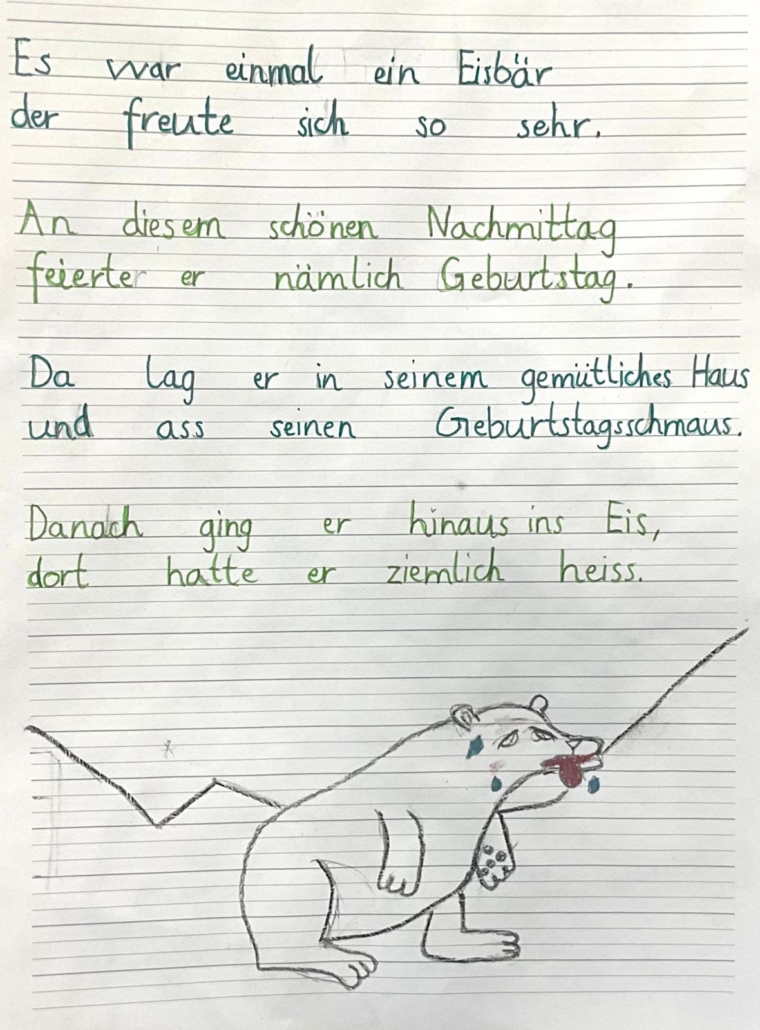 Es war einmal ein Eisbär
der freute sich so sehr.
An diesem schönen Nachmittag
feierte er nämlich Geburtstag.
Da lag er in seinem gemütliches Haus
und ass seinen Geburtstagsschmaus.
Danach ging er hinaus ins Eis,
dort hatte er ziemlich heiss.